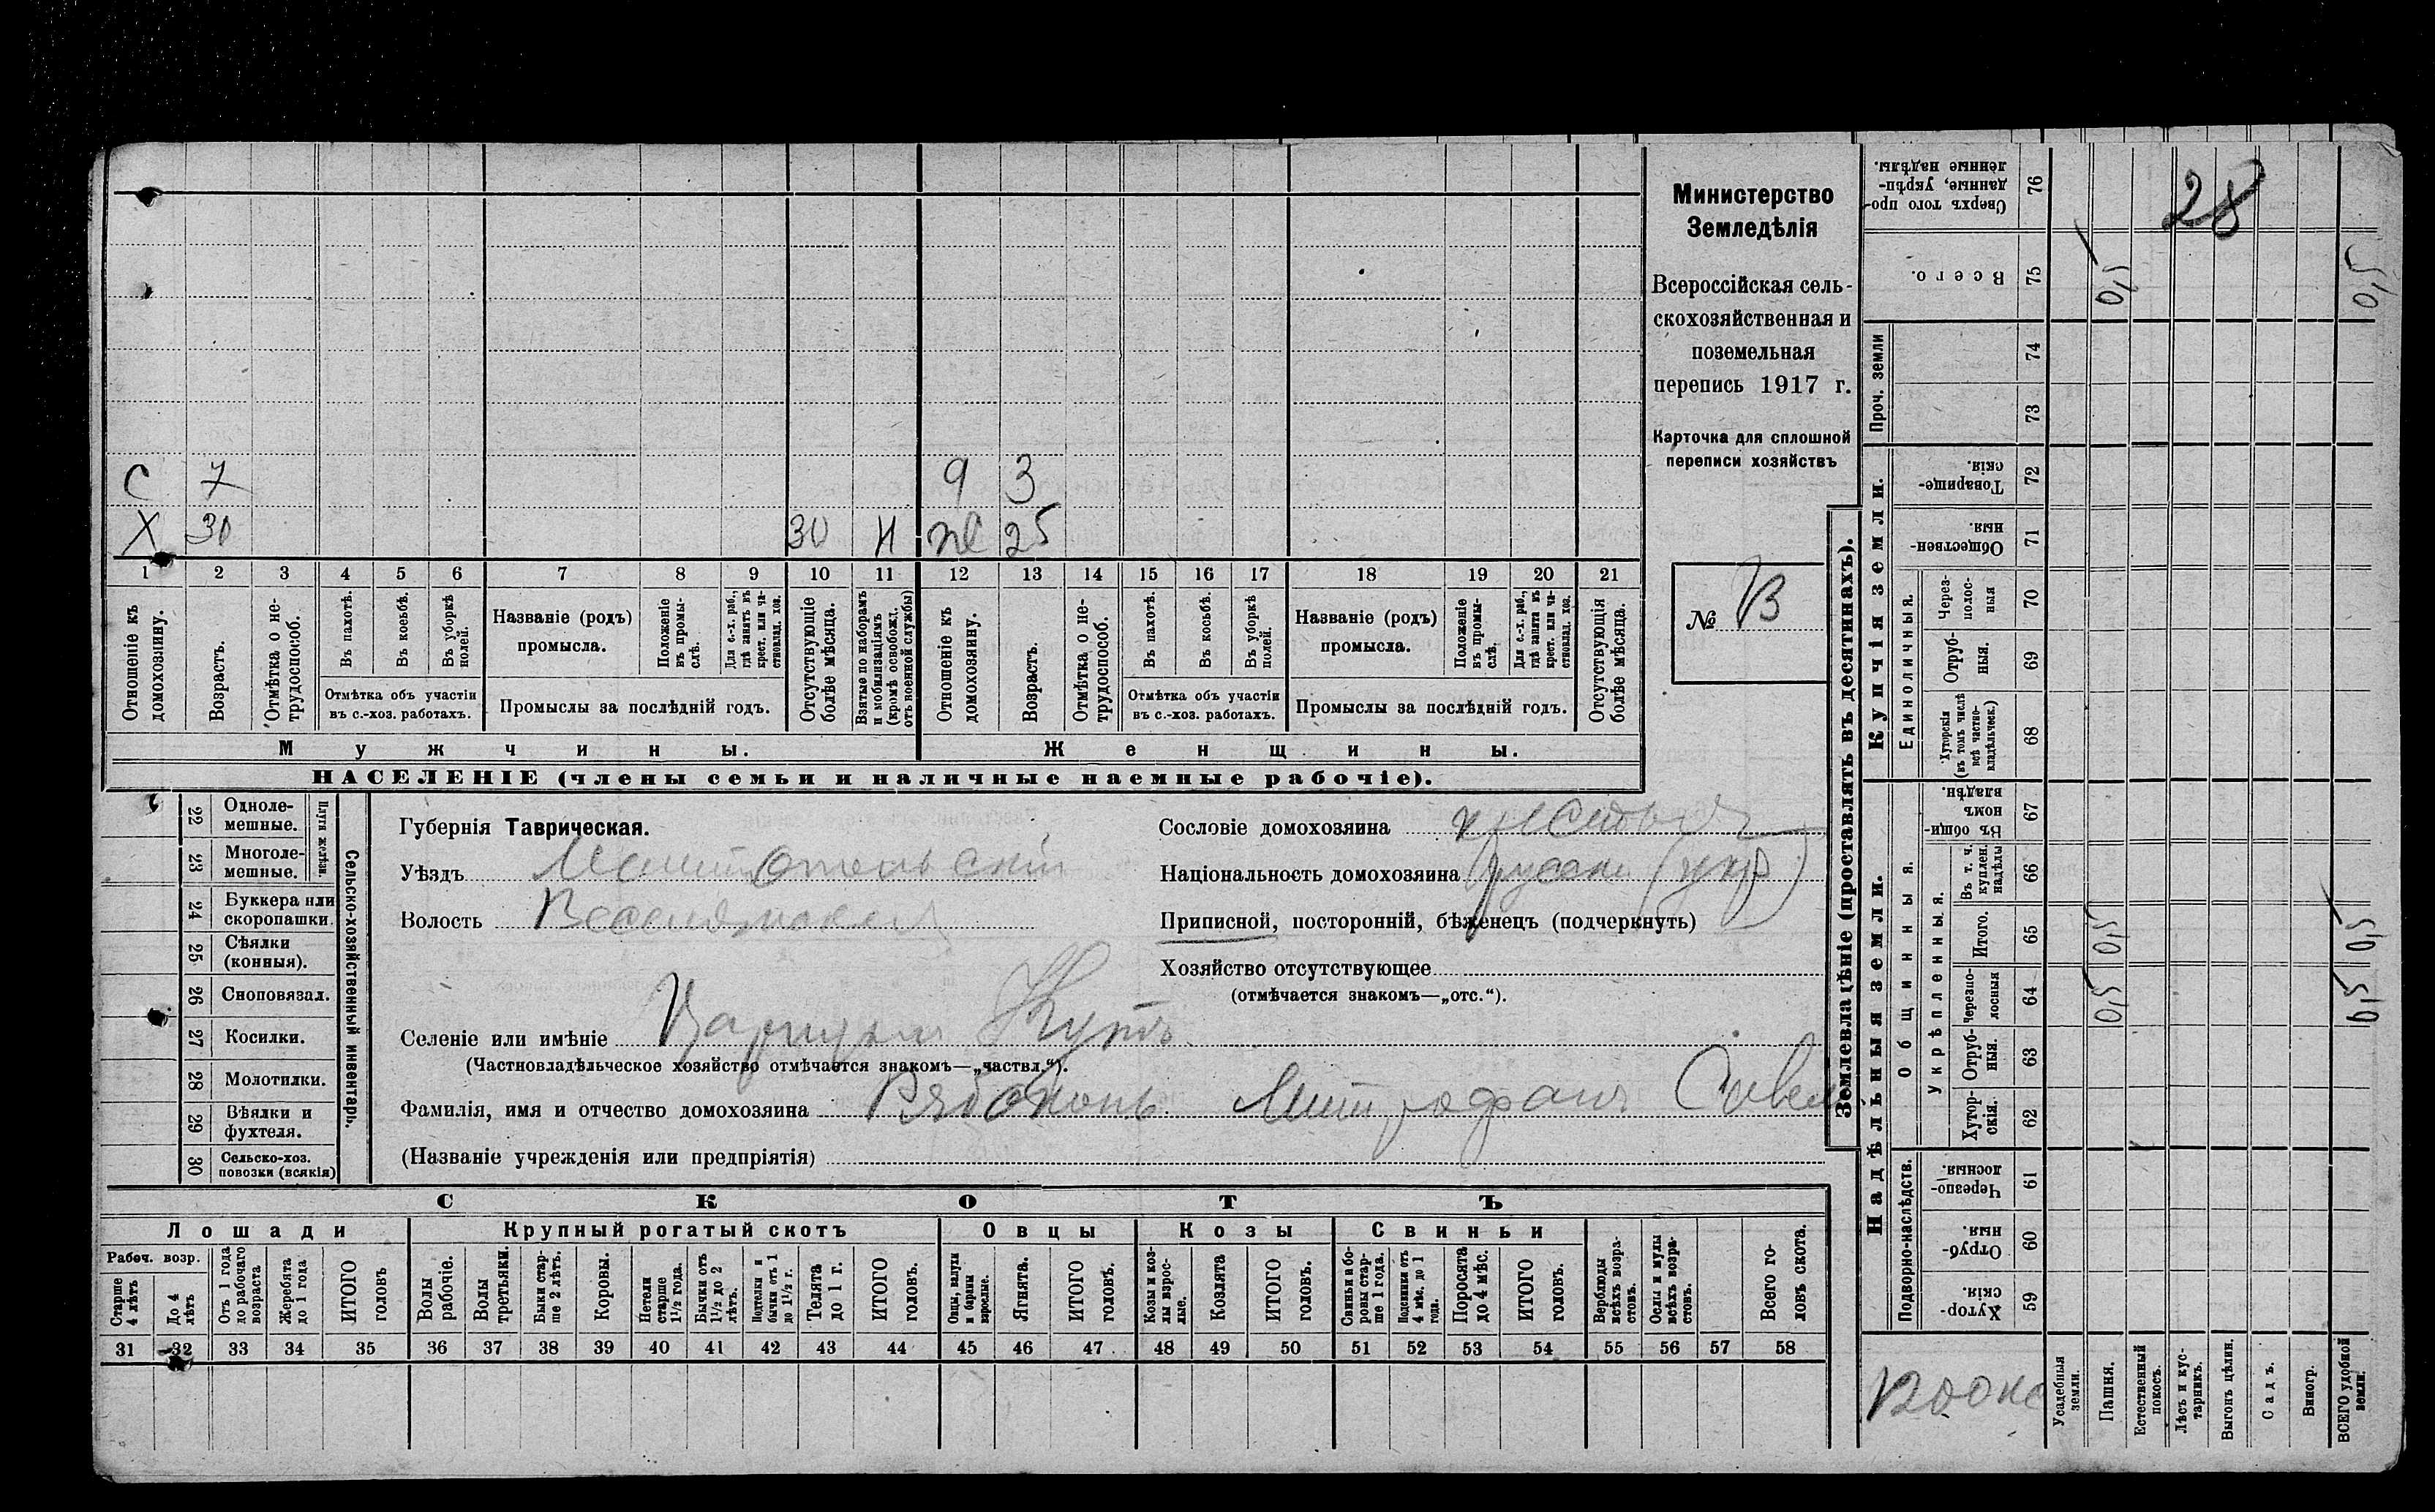 С 7 9 3
Х 30 30 Н ж 25
1 2 3 4 5 6 7 8 9 10 11 12 13 14 15 16 17 18 19 20 21
Отношеніе къ домохозяину.
Возрастъ.
Отмѣтка о не-трудоспособ.
Въ пахотѣ.
Въ косьбѣ.
Въ уборкѣ полей.
Отмѣтка объ участіи
въ с.-хоз. работахъ.
Названіе (родъ)
промысла.
Положеніе въ промы-слѣ.
Для с.-х. раб., гдѣ занятъ въ крест. или ча-стновлад. хоз.
Промыслы за послѣдній годъ.
Отсутствующіе болѣе мѣсяца.
Взятые по наборамъ и мобилизаціямъ (кромѣ освобожд. отъ военной службы)
Отношеніе къ домохозяину.
Возрастъ.
Отмѣтка о не-трудоспособ.
Въ пахотѣ.
Въ косьбѣ.
Въ уборкѣ полей.
Отмѣтка объ участіи
въ с.-хоз. работахъ.
Названіе (родъ)
промысла.
Положеніе въ промы-слѣ.
Для с.-х. раб., гдѣ занята въ крест. или ча-стновлад. хоз.
Промыслы за послѣдній годъ.
Отсутствующія болѣе мѣсяца.
Мужчины. Женщины.
НАСЕЛЕНІЕ (члены семьи и наличные наемные рабочіе).
Министерство
Земледѣлія
Всероссійская сель-
скохозяйственная и
поземельная
перепись 1917 г.
Карточка для сплошной
переписи хозяйствъ
№
Сельско-хозяйственный инвентарь.
Плуги желѣзн.
22 Одноле-мешные.
23 Многоле-мешные.
24 Буккера или скоропашки.
25 Сѣялки (конныя).
26 Сноповязал.
27 Косилки.
28 Молотилки.
29 Вѣялки и фухтеля.
30 Сельско-хоз. повозки (всякія)
Губернія Таврическая.
Уѣздъ Мелитопольскій
Волость
Сословіе домохозяина
Національность домохозяина русскі (укр)
Приписной, посторонній, бѣженецъ (подчеркнуть)
Хозяйство отсутствующее
(отмѣчается знакомъ—„отс.“).
Селеніе или имѣніе Кутъ
(Частновладѣльческое хозяйство отмѣчается знакомъ—„частвл.“).
Фамилія, имя и отчество домохозяина Рябоконь Митрофанъ Савел
(Названіе учрежденія или предпріятія)
СКОТЪ
Лошади Крупный рогатый скотъ Овцы Козы Свиньи
Рабоч. возр.
Старше 4 лѣтъ
До 4 лѣтъ
Отъ 1 года до рабочаго возраста
Жеребята до 1 года
ИТОГО головъ
Волы рабочіе.
Волы третьяки.
Быки стар-ше 2 лѣтъ.
Коровы.
Нетели старше 1½ года.
Бычки отъ 1½ до 2 лѣтъ.
Подтелки и бычки отъ 1 до 1½ г.
Телята до 1 г.
ИТОГО головъ.
Овцы, валухи и бараны взрослые.
Ягнята.
ИТОГО головъ.
Козы и коз-лы взрос-лые.
Козлята
ИТОГО головъ.
Свиньи и бо-ровы стар-ше 1 года.
Подсвинки отъ 4 мѣс. до 1 года.
Поросята до 4 мѣс.
ИТОГО головъ.
Верблюды всѣхъ возра-стовъ.
Ослы и мулы всѣхъ возра-стовъ.
Всего го-ловъ скота.
31 32 33 34 35 36 37 38 39 40 41 42 43 44 45 46 47 48 49 50 51 52 53 54 55 56 57 58
Землевладѣніе (проставлять въ десятинахъ).
Купчія земли.
Надѣльныя земли.
Сверхъ того про-данные, укрѣп-ленные надѣлы. 76
28
Всего. 75 0,5 0,5
Проч. земли
74
73
Товарище-скія. 72
Обществен-ныя. 71
Единоличныя.
Через-полос-ныя 70
Отруб-ныя. 69
Хуторскія (въ томъ числѣ всѣ частно-владѣльческ.) 68
Общинныя.
Въ общин-номъ владѣн. 67
Укрѣпленныя.
Въ т. ч. куплен. надѣлы 66
Итого. 65 0,5 0,5
Черезпо-лосныя 64 0,5 0,5
Отруб-ныя. 63
Хутор-скія. 62
Подворно-наслѣдств.
Черезпо-лосныя. 61
Отруб-ныя. 60
Хутор-скія. 59
Усадебныя земли.
Пашня.
Естественный покосъ.
Лѣсъ и кус-тарникъ.
Выгонъ цѣлин.
Садъ.
Виногр.
ВСЕГО удобной земли.